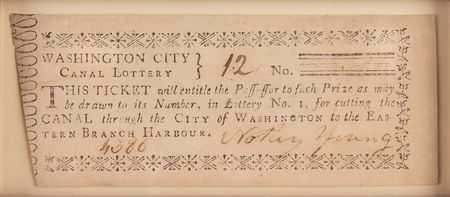 WASHINGTON CITY } 12 No.
CANAL LOTTERY
THIS TICKET will entitle the Possessor to such Prize as may
be drawn to its Number, in Lottery No. 1, for cutting the
CANAL through the CITY of WASHINGTON to the EAS-
TERN BRANCH HARBOUR. Notley Young
4380